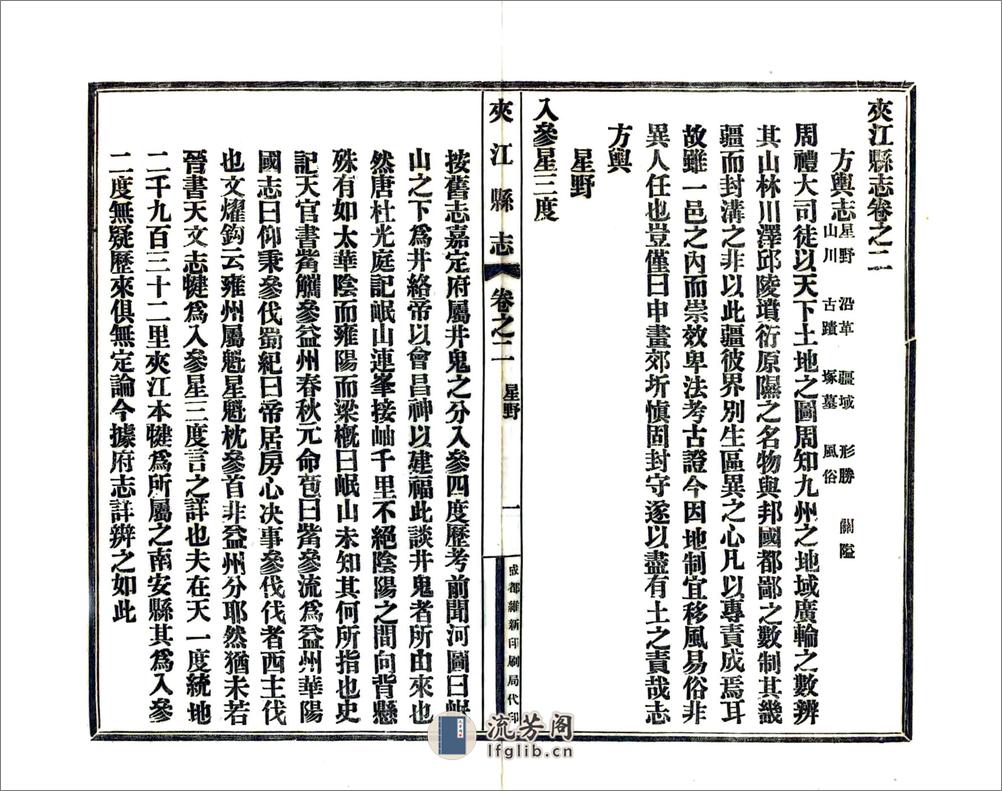 夾江縣志卷之二
方輿志星野 沿革 疆域 形勝 關隘
山川 古蹟 塚墓 風俗
周禮大司徒以天下土地之圖周知九州之地域廣輪之數辨
其山林川澤邱陵墳衍原隰之名物與邦國都鄙之數制其畿
疆而封溝之非以此疆彼界別生區異之心凡以專責成焉耳
故雖一邑之內而崇效卑法考古證今因地制宜移風易俗非
異人任也豈僅曰申畫郊圻慎固封守遂以盡有土之責哉志
方輿
星野
入參星三度
夾江縣志 卷之二 星野 一 成都維新印刷局代印
按舊志嘉定府屬井鬼之分入參四度歷考前聞河圖曰岷
山之下為井絡帝以會昌神以建福此談井鬼者所由來也
然唐杜光庭記岷山連峯接岫千里不絕陰陽之間向背懸
殊有如太華陰而雍陽而梁概曰岷山未知其何所指也史
記天官書觜觿參益州春秋元命苞曰觜參流為益州華陽
國志曰仰秉參伐蜀紀曰帝居房心決事參伐伐者西主伐
也文燿鈎云雍州屬魁星魁枕參首非益州分耶然猶未若
晉書天文志犍為入參星三度言之詳也夫在天一度統地
二千九百三十二里夾江本犍為所屬之南安縣其為入參
二度無疑歷來俱無定論今據府志詳辨之如此
流芳阁
lfglib.cn